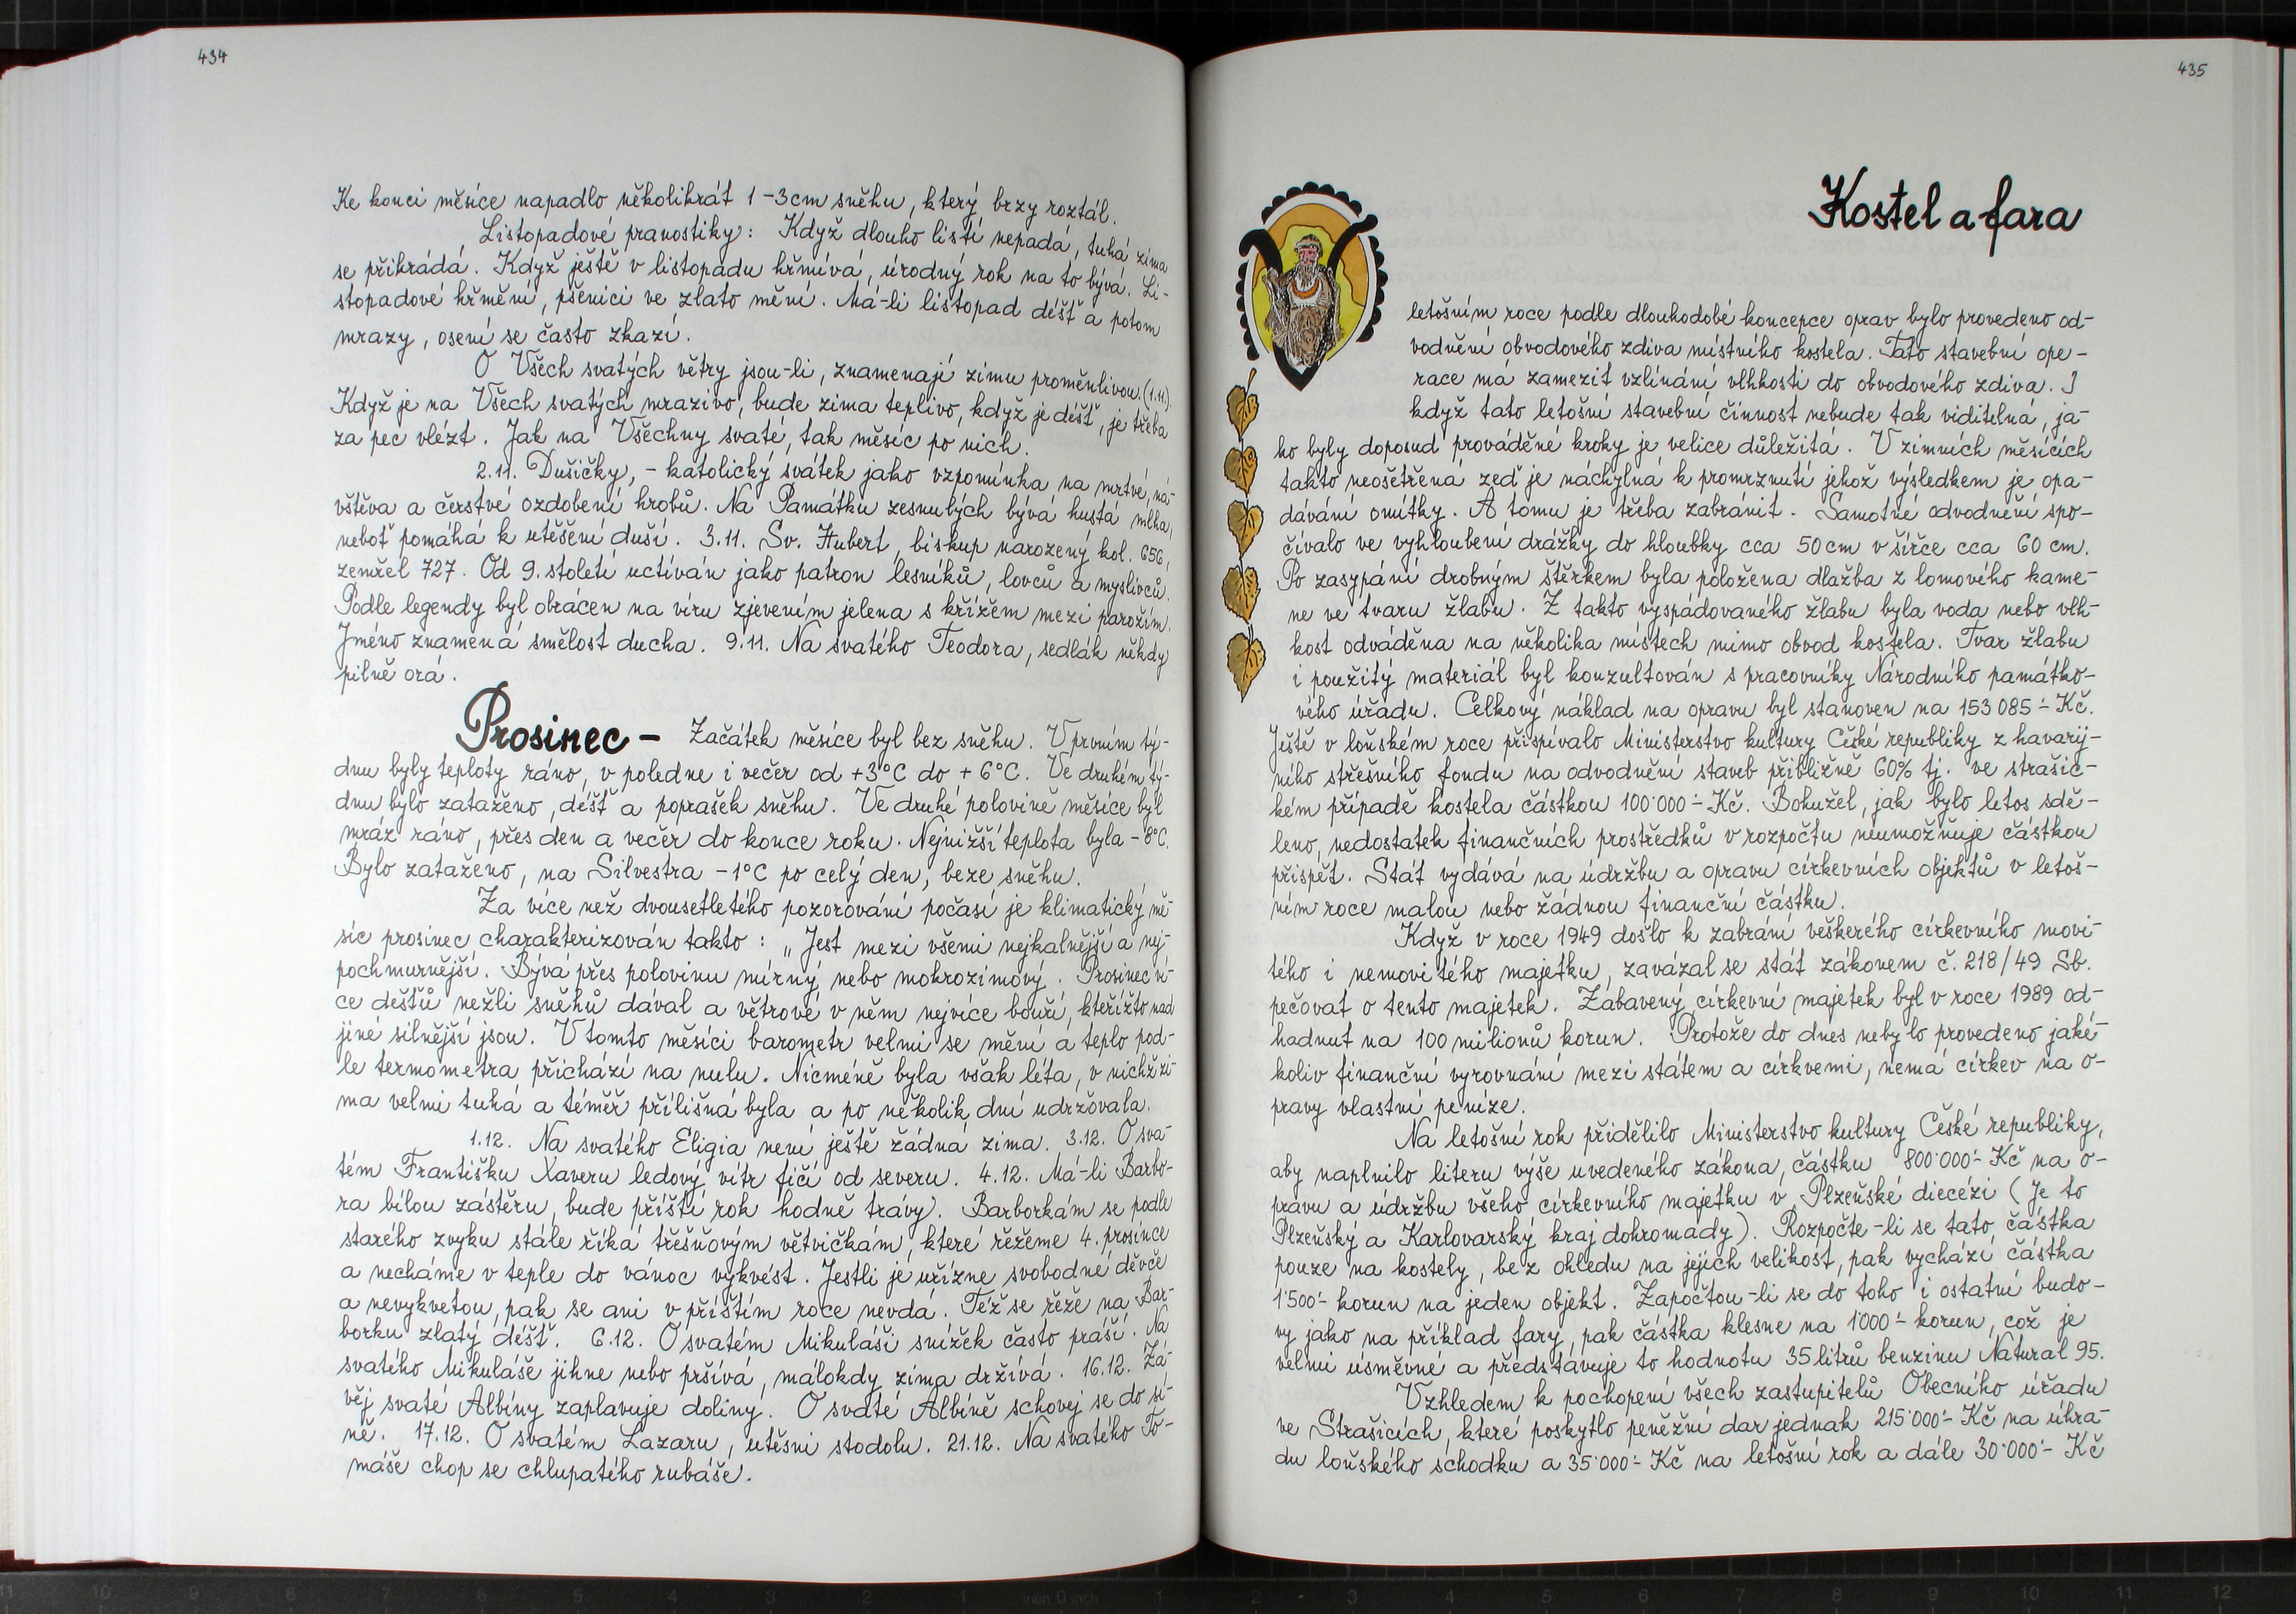 434
Ke konci měsíce napadlo několikrát 1-3cm sněhu, který brzy roztál.
Listopadové pranostiky: Když dlouho listí nepadá, tuhá zima
se přikrádá. Když ještě v listopadu hřmívá, úrodný rok na to bývá. Li-
stopadové hřmění, pšenici ve zlato mění. Má-li listopad déšť a potom
mrazy, osení se často zkazí.
O Všech svatých větry jsou-li, znamenají zimu proměnlivou.(1.11.)
Když je na Všech svatých mrazivo, bude zima teplivo, když je déšť, je třeba
za pec vlézt. Jak na Všechny svaté, tak měsíc po nich.
2.11. Dušičky, - katolický svátek jako vzpomínka na mrtvé, ná-
vštěva a čerstvé ozdobení hrobů. Na Památku zesnulých bývá hustá mlha,
neboť pomáhá k utěšení duší. 3.11. Sv. Hubert, biskup narozený kol. 656,
zemřel 727. Od 9. století uctíván jako patron lesníků, lovců a myslivců.
Podle legendy byl obrácen na víru zjevením jelena s křížem mezi parožím.
Jméno znamená smělost ducha. 9.11. Na svatého Teodora, sedlák někdy
pilně orá.
Prosinec - Začátek měsíce byl bez sněhu. V prvním tý-
dnu byly teploty ráno, v poledne i večer od +3°C do +6°C. Ve druhém tý-
dnu bylo zataženo, déšť a poprašek sněhu. Ve druhé polovině měsíce byl
mráz ráno, přes den a večer do konce roku. Nejnižší teplota byla -8°C.
Bylo zataženo, na Silvestra -1°C po celý den, beze sněhu.
Za více než dvousetletého pozorování počasí je klimatický mě-
síc prosinec charakterizován takto: „Jest mezi všemi nejkalnější a nej-
pochmurnější. Bývá přes polovinu mírný nebo mokrozimový. Prosinec ví-
ce dešťů nežli sněhů dával a větrové v něm nejvíce bouří, kteřížto nad
jiné silnější jsou. V tomto měsíci barometr velmi se mění a teplo pod-
le termometra přichází na nulu. Nicméně byla však léta, v nichž zi-
ma velmi tuhá a téměř přílišná byla a po několik dní udržovala.
1.12. Na svatého Eligia není ještě žádná zima. 3.12. O sva-
tém Františku Xaveru ledový vítr fičí od severu. 4.12. Má-li Barbo-
ra bílou zástěru, bude příští rok hodně trávy). Barborkám se podle
starého zvyku stále říká třešňovým větvičkám, které řežeme 4. prosince
a necháme v teple do vánoc vykvést. Jestli je uřízne svobodné děvče
a nevykvetou, pak se ani v příštím roce nevdá. Též se řeže na Bar-
borku zlatý déšť. 6.12. O svatém Mikuláši snížek často práší. Na
svatého Mikuláše jihne nebo pršívá, málokdy zima držívá. 16.12. Zá-
věj svaté Albíny zaplavuje doliny. O svaté Albíně schovej se do sí-
ně. 17.12. O svatém Lazaru, utěsni stodolu. 21.12. Na svatého To-
máše chop se chlupatého rubáše.
435
Kostel a fara
V letošním roce podle dlouhodobé koncepce oprav bylo provedeno od-
vodnění obvodového zdiva místního kostela. Tato stavební ope-
race má zamezit vzlínání vlhkosti do obvodového zdiva. I
když tato letošní stavební činnost nebude tak viditelná, ja-
ko byly doposud prováděné kroky je velice důležitá. V zimních měsících
takto neošetřená zeď je náchylná k promrznutí jehož výsledkem je opa-
dávání omítky. A tomu je třeba zabránit. Samotné odvodnění spo-
čívalo ve vyhloubení drážky do hloubky cca 50cm v šířce cca 60 cm.
Po zasypání drobným štěrkem byla položena dlažba z lomového kame-
ne ve tvaru žlabu. Z takto vyspádovaného žlabu byla voda nebo vlh-
kost odváděna na několika místech mimo obvod kostela. Tvar žlabu
i použitý materiál byl konzultován s pracovníky Národního památko-
vého úřadu. Celkový náklad na opravu byl stanoven na 153 085.- Kč.
Ještě v loňském roce přispívalo Ministerstvo kultury České republiky z havarij-
ního střešního fondu na odvodnění staveb přibližně 60% tj. ve strašic-
kém případě kostela částkou 100˙000.- Kč. Bohužel, jak bylo letos sdě-
leno, nedostatek finančních prostředků v rozpočtu neumožňuje částkou
přispět. Stát vydává na údržbu a opravu církevních objektů v letoš-
ním roce malou nebo žádnou finanční částku.
Když v roce 1949 došlo k zabrání veškerého církevního movi-
tého i nemovitého majetku, zavázal se stát zákonem č. 218/49 Sb.
pečovat o tento majetek. Zabavený církevní majetek byl v roce 1989 od-
hadnut na 100 milionů korun. Protože do dnes nebylo provedeno jaké-
koliv finanční vyrovnání mezi státem a církvemi, nemá církev na o-
pravy vlastní peníze.
Na letošní rok přidělilo Ministerstvo kultury České republiky,
aby naplnilo literu výše uvedeného zákona, částku 800˙000.- Kč na o-
pravu a údržbu všeho církevního majetku v Plzeňské diecézi (Je to
Plzeňský a Karlovarský kraj dohromady). Rozpočte-li se tato částka
pouze na kostely, bez ohledu na jejich velikost, pak vychází částka
1˙500.- korun na jeden objekt. Započtou-li se do toho i ostatní budo-
vy jako na příklad fary, pak částka klesne na 1˙000.- korun, což je
velmi úsměvné a představuje to hodnotu 35 litrů benzinu Natural 95.
Vzhledem k pochopení všech zastupitelů Obecního úřadu
ve Strašicích, které poskytlo peněžní dar jednak 215˙000.- Kč na úhra-
du loňského schodku a 35˙000.- Kč na letošní rok a dále 30˙000.- Kč